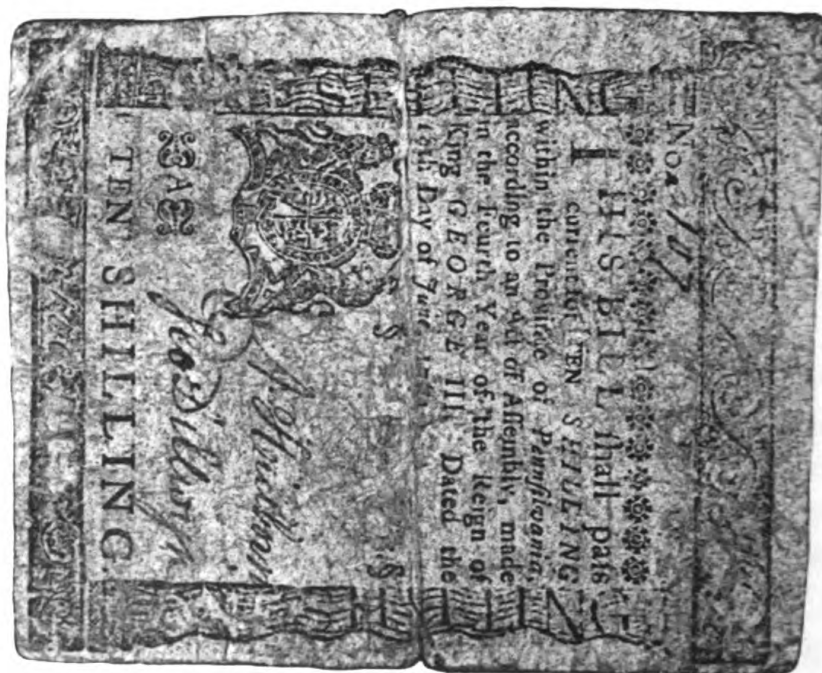 No. 107
THIS BILL ſhall paſs
current for TEN SHILLINGS,
within the Province of Pennſylvania,
according to an Act of Aſſembly, made
in the Fourth Year of the Reign of
King GEORGE III. Dated the
Day of June,
§ §
A
TEN SHILLINGS.